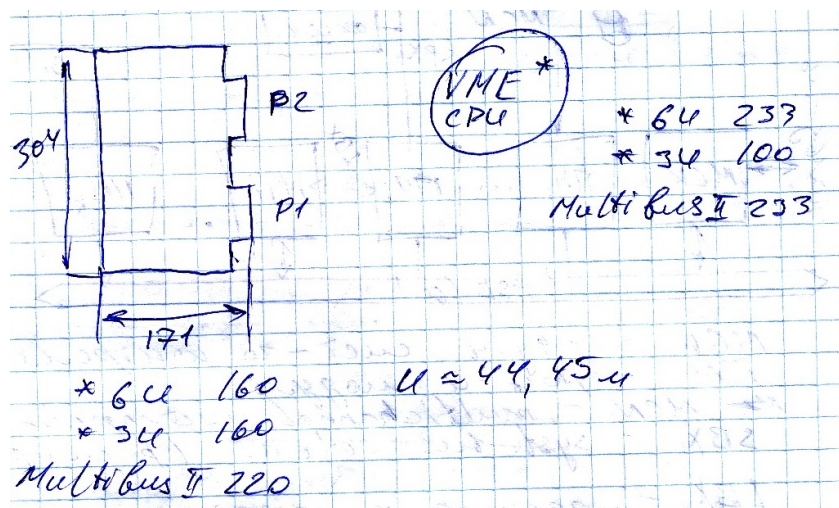 304
P2
P1
171
VME *
CPU
* 6U 233
* 3U 100
Multibus II 233
* 6U 160
* 3U 160
Multibus II 220
U ≃ 44,45 м